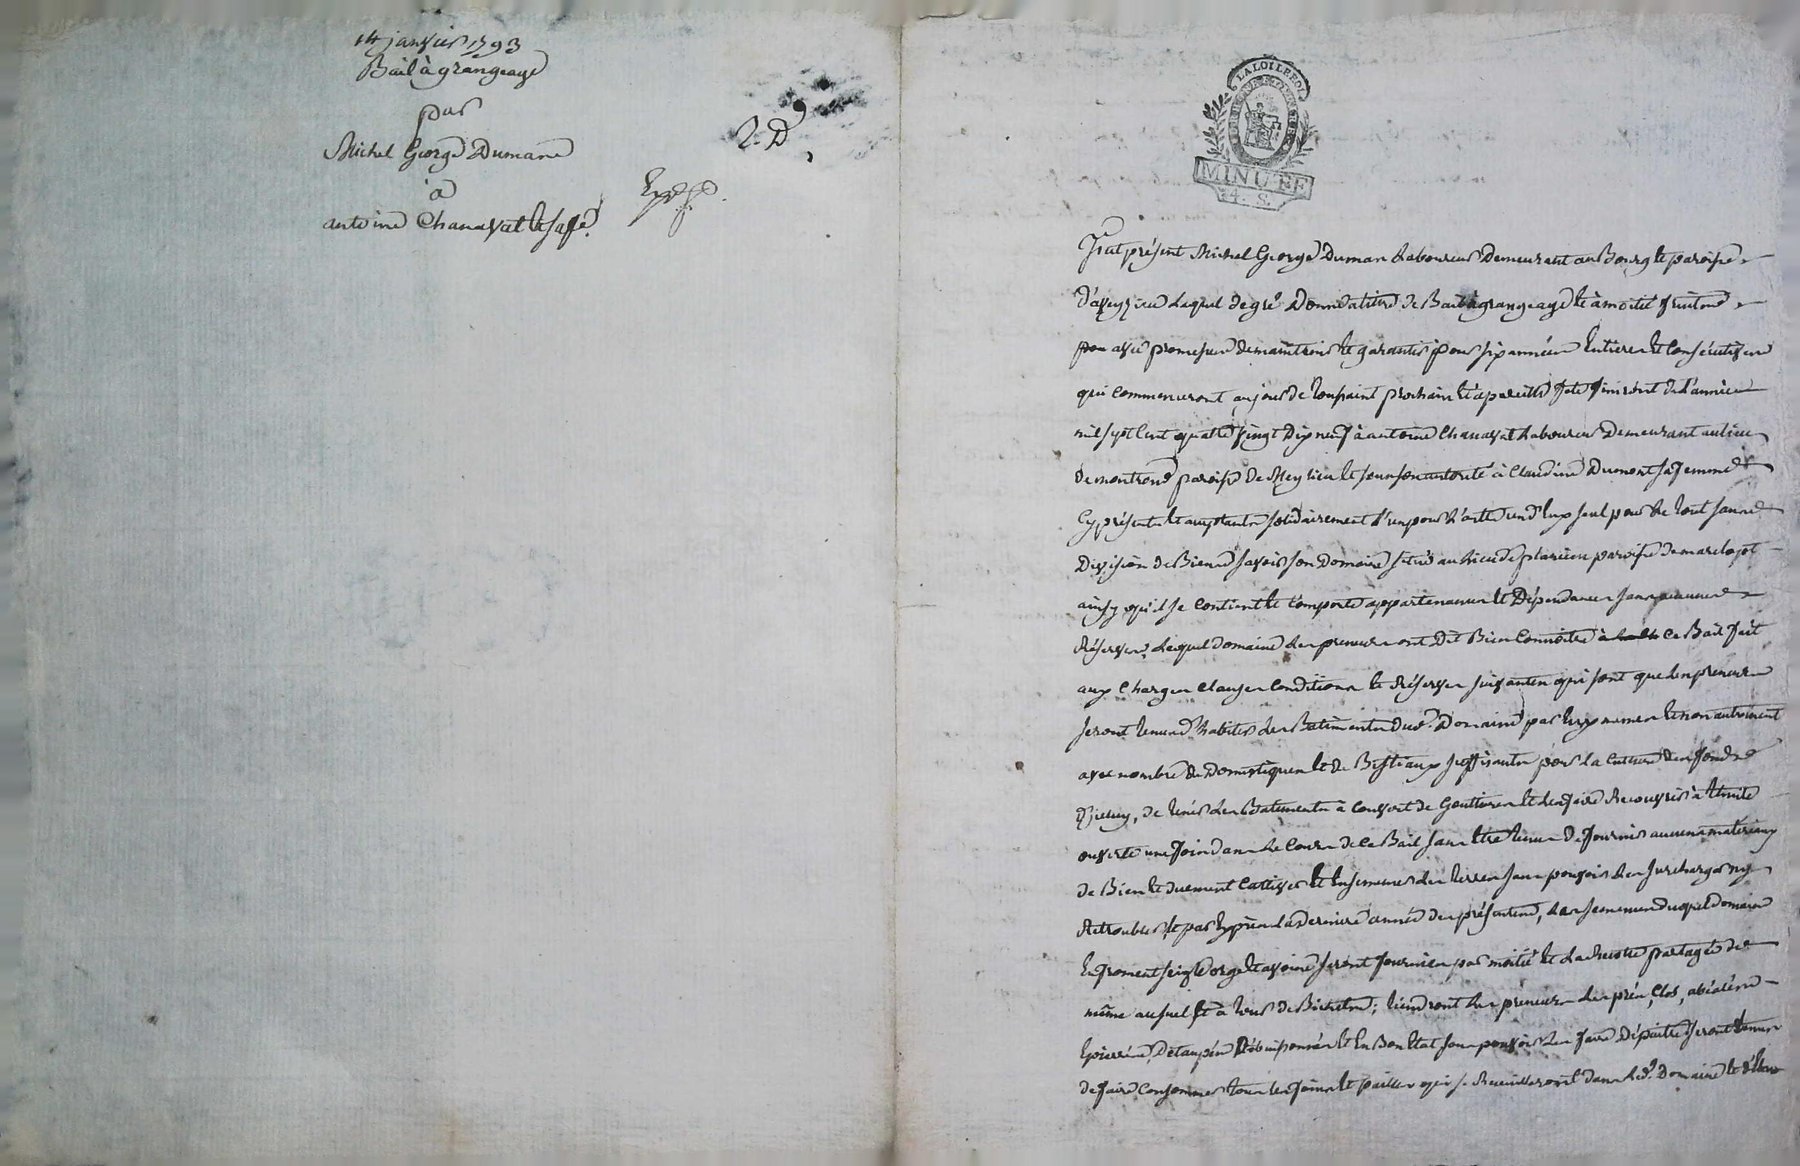 14 janvier 1793
Bail à grangeage
par
Michel George Dumane
à
antoine Chanavat & sa fe.
2. D
Expé
LA LOI LE ROI
MINUTE
4. S.
Fut présent Michel George Duman Laboureur Demeurant au Bourg & paroisse
d'aveyzieu Lequel de gré Donne à titre de Bail à grangeage & à moitié fruits
pou avec promesse de maintenir & garantir pour six années Entieres & Consécutives
qui commenceront au jour de Toussaint prochain & à pareille fete finiront de l'année
mil sept Cent quatre vingt Dix neuf à antoine Chanavat Laboureur Demeurant au lieu
de montrond paroisse de Meylieu & sous son autorité à Claudine Dumont sa femme
Cy présents & acceptants solidairement l'un pour l'autre un d'Eux seul pour Le tout sans
Division de Biens savoir son Domaine situé au Lieu de paroisse de marclopt
ainsy qu'il se Contient & Comporte appartenances & Dépendances sans aucune
Réserve, Lequel domaine Les preneurs ont Dit Bien Connoitre à ce Bail fait
aux Charges Clauses Conditions & Réserves suivantes qui sont que Les preneurs
seront tenus d'habiter Les Batiments dud. Domaine par Eux mêmes & non autrement
avec nombre de Domestiques & de Bestiaux suffisants pour La Culture des fonds
d'icelui, de tenir Les Batiments à Couvert de Gouttieres & Les faire Recouvrir à tuile
ouverte une fois dans Le Cours de Ce Bail sans Etre tenus De fournir aucuns matériaux
de Bien & duement Cultiver & Ensemencer Les terres sans pouvoir Les surcharger ny
Retroubler & par Exprès La Derniere année des présentes, Les semences duquel domaine
En froment seigle orge & avoine seront fournies par moitié & La Recolte partagée de
même au suel & à tour de Bichet; tiendront Les preneurs Les prés, Clos,
Epierrés Détaupés & En Bon Etat sans pouvoir Les faire Dépaitre seront tenus
de faire Consommer tous Les foins & pailles qui se Recueilleront dans Led. Domaine &